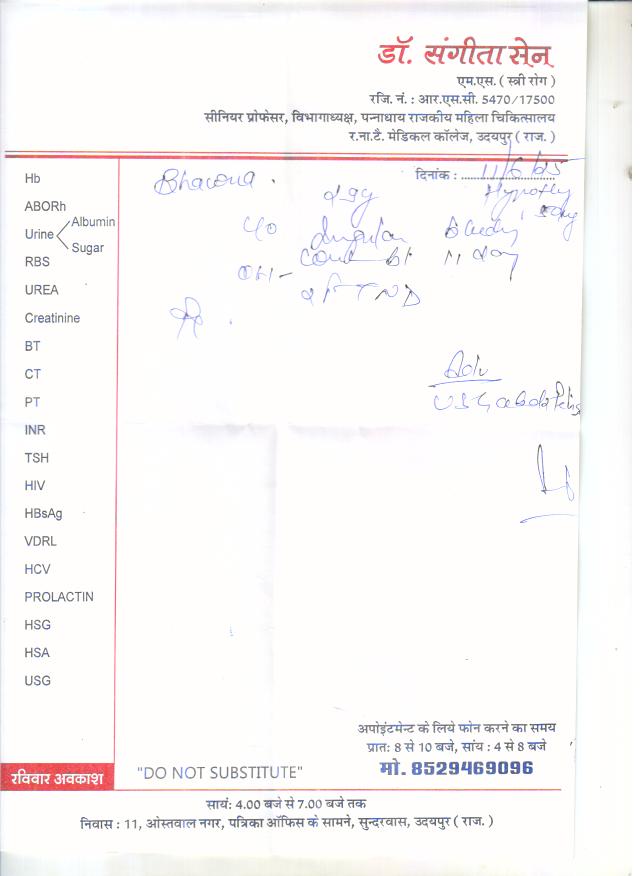 डॉ. संगीता सेन
एम.एस. ( स्त्री रोग )
रजि. नं. : आर.एस.सी. 5470/17500
सीनियर प्रोफेसर, विभागाध्यक्ष, पन्नाधाय राजकीय महिला चिकित्सालय
र.ना.टै. मेडिकल कॉलेज, उदयपुर ( राज. )
दिनांक :
Hb
ABORh
Urine Albumin
Sugar
RBS
UREA
Creatinine
BT
CT
PT
INR
TSH
HIV
HBsAg
VDRL
HCV
PROLACTIN
HSG
HSA
USG
Bhavna
Adv
USG
अपोइंटमेन्ट के लिये फोन करने का समय
प्रातः 8 से 10 बजे, सांय : 4 से 8 बजे
मो. 8529469096
रविवार अवकाश
"DO NOT SUBSTITUTE"
सायं: 4.00 बजे से 7.00 बजे तक
निवास : 11, ओस्तवाल नगर, पत्रिका ऑफिस के सामने, सुन्दरवास, उदयपुर ( राज. )